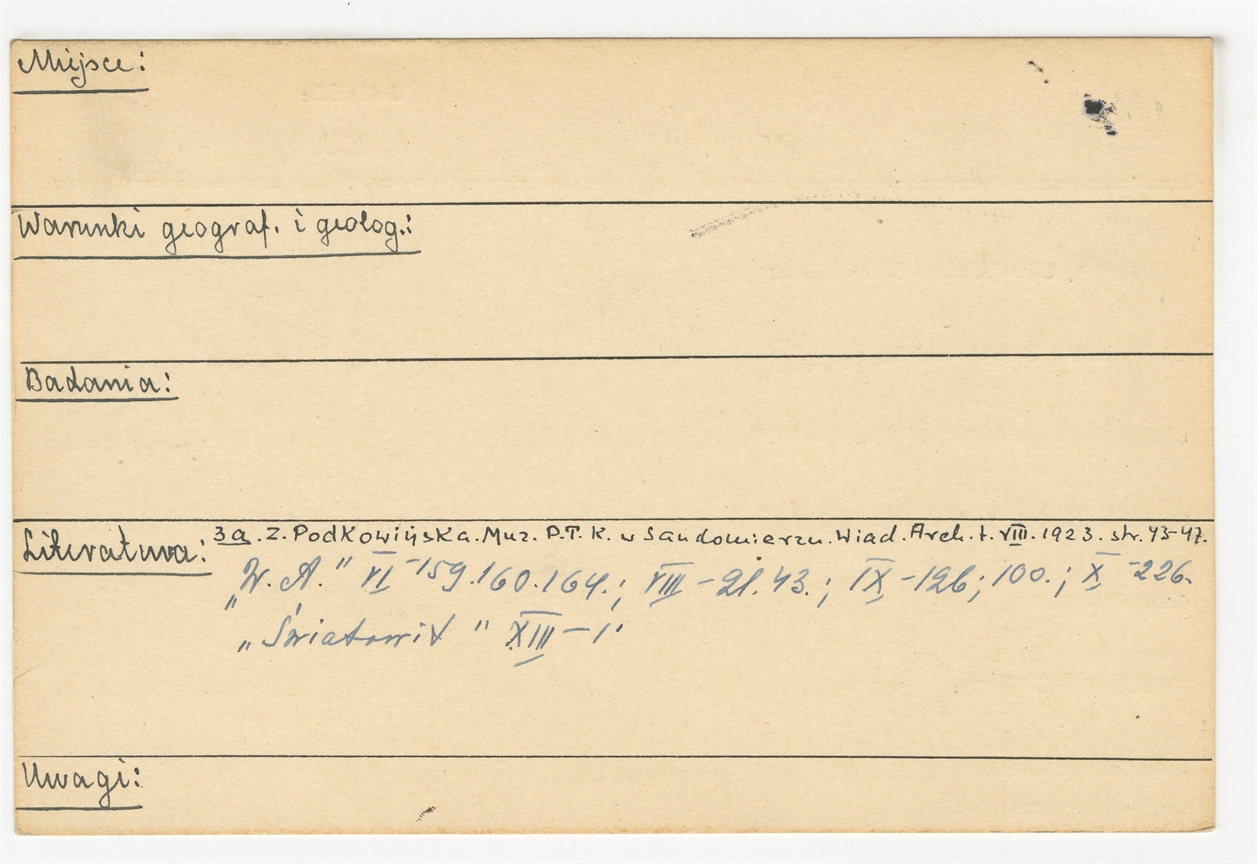 Miejsce:
Warunki geograf. i geolog.:
Badania:
Literatura: 3a. Z. Podkowińska. Muz. P.T.K. w Sandomierzu. Wiad. Arch. t. VIII. 1923. str. 43-47.
„W. A." VI-159.160.164.; VIII-21.43.; IX-126; 100.; X-226.
„Światowit" XIII-1
Uwagi: